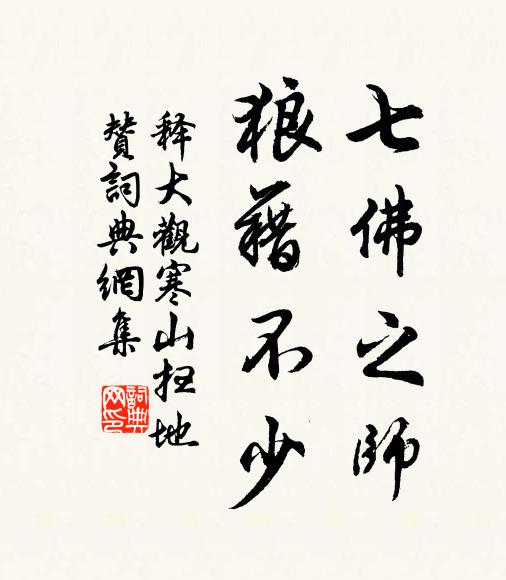 七佛之師
狼藉不少
释大觀寒山扫地
贊詞典網集
詞典网印